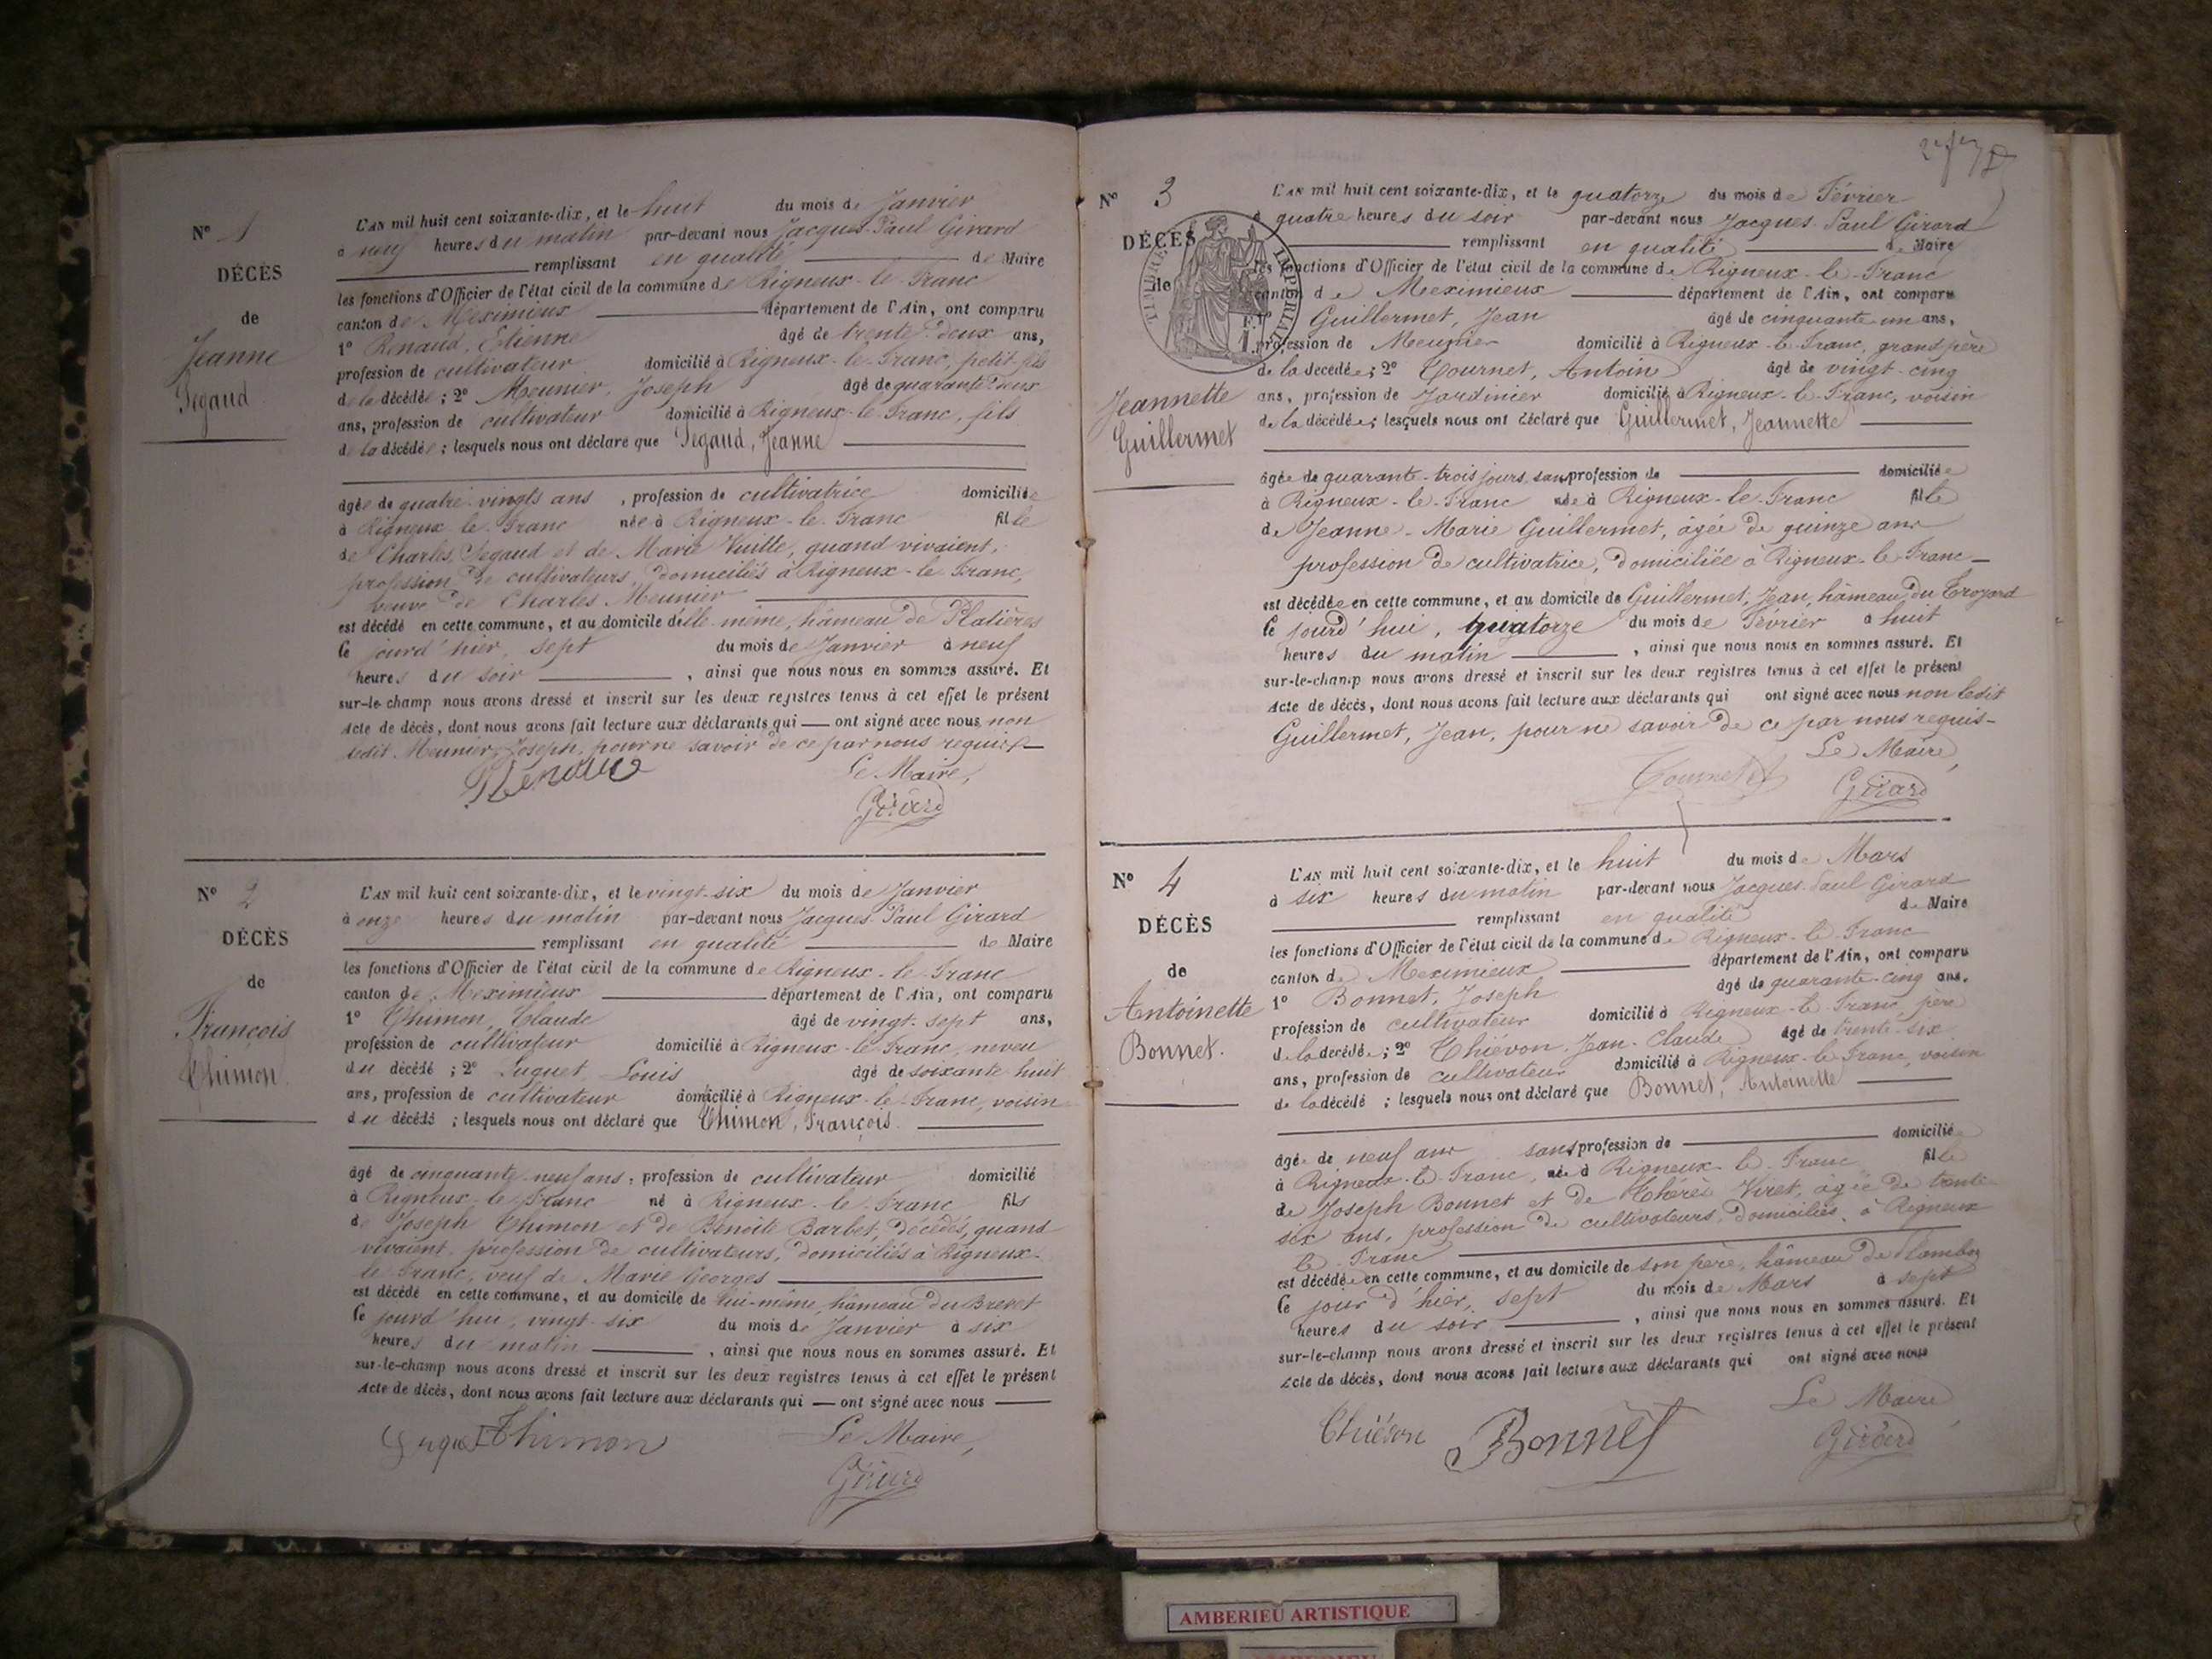 N° 1
DÉCÈS
de
Jeanne
Segaud
L'AN mil huit cent soixante-dix, et le huit du mois de Janvier
à neuf heures du matin par-devant nous Jacques-Paul Girard
remplissant en qualité de Maire
les fonctions d'Officier de l'état civil de la commune de Rigneux-le-Franc
canton de Meximieux département de l'Ain, ont comparu
1° Renaud, Etienne âgé de trente-deux ans,
profession de cultivateur domicilié à Rigneux-le-Franc, petit-fils
de la décédée ; 2° Meunier, Joseph âgé de quarante-deux
ans, profession de cultivateur domicilié à Rigneux-le-Franc, fils
de la décédée ; lesquels nous ont déclaré que Segaud, Jeanne
âgée de quatre-vingts ans , profession de cultivatrice domiciliée
à Rigneux-le-Franc née à Rigneux-le-Franc fille
de Charles Segaud et de Marie Vuitte, quand vivaient,
profession de cultivateurs, domiciliés à Rigneux-le-Franc,
veuve de Charles Meunier
est décédé en cette commune, et au domicile d'elle-même, hâmeau de Platières
le jourd'hier, sept du mois de Janvier à neuf
heures du soir , ainsi que nous nous en sommes assuré. Et
sur-le-champ nous avons dressé et inscrit sur les deux registres tenus à cet effet le présent
Acte de décès, dont nous avons fait lecture aux déclarants qui — ont signé avec nous, non
ledit Meunier, Joseph, pour ne savoir de ce par nous requis
Renaud Le Maire,
Girard
N° 2
DÉCÈS
de
François
Thimon.
L'AN mil huit cent soixante-dix, et le vingt-six du mois de Janvier
à onze heures du matin par-devant nous Jacques-Paul Girard
remplissant en qualité de Maire
les fonctions d'Officier de l'état civil de la commune de Rigneux-le-Franc
canton de Meximieux département de l'Ain, ont comparu
1° Thimon, Claude âgé de vingt-sept ans,
profession de cultivateur domicilié à Rigneux-le-Franc, neveu
du décédé ; 2° Luguet, Louis âgé de soixante-huit
ans, profession de cultivateur domicilié à Rigneux-le-Franc, voisin
du décédé ; lesquels nous ont déclaré que Thimon, François.
âgé de cinquante-neuf ans, profession de cultivateur domicilié
à Rigneux-le-Franc né à Rigneux-le-Franc fils
de Joseph Thimon et de Benoîte Barbet, décédés, quand
vivaient, profession de cultivateurs, domiciliés à Rigneux-
le-Franc, veuf de Marie Georges
est décédé en cette commune, et au domicile de lui-même, hâmeau du Brevet
le jourd'hui, vingt-six du mois de Janvier à six
heures du matin , ainsi que nous nous en sommes assuré. Et
sur-le-champ nous avons dressé et inscrit sur les deux registres tenus à cet effet le présent
Acte de décès, dont nous avons fait lecture aux déclarants qui — ont signé avec nous
Luguet Thimon Le Maire,
Girard
N° 3
DÉCÈS
de
Jeannette
Guillermet
TIMBRE IMPÉRIAL
L'AN mil huit cent soixante-dix, et le quatorze du mois de Février
à quatre heures du soir par-devant nous Jacques-Paul Girard
remplissant en qualité de Maire
les fonctions d'Officier de l'état civil de la commune de Rigneux-le-Franc
canton de Meximieux département de l'Ain, ont comparu
Guillermet, Jean âgé de cinquante-un ans,
profession de Meunier domicilié à Rigneux-le-Franc, grand père
de la décédée ; 2° Tournet, Antoine âgé de vingt-cinq
ans, profession de Jardinier domicilié à Rigneux-le-Franc, voisin
de la décédée ; lesquels nous ont déclaré que Guillermet, Jeannette
âgée de quarante-trois jours, sans profession de domiciliée
à Rigneux-le-Franc née à Rigneux-le-Franc fille
de Jeanne-Marie Guillermet, âgée de quinze ans
profession de cultivatrice, domiciliée à Rigneux-le-Franc
est décédée en cette commune, et au domicile de Guillermet, Jean, hâmeau du Troyard
le jourd'hui, quatorze du mois de Février à huit
heures du matin , ainsi que nous nous en sommes assuré. Et
sur-le-champ nous avons dressé et inscrit sur les deux registres tenus à cet effet le présent
Acte de décès, dont nous avons fait lecture aux déclarants qui ont signé avec nous non ledit
Guillermet, Jean, pour ne savoir de ce par nous requis
Le Maire,
Tournet Girard
N° 4
DÉCÈS
de
Antoinette
Bonnet.
L'AN mil huit cent soixante-dix, et le huit du mois de Mars
à six heures du matin par-devant nous Jacques-Paul Girard
remplissant en qualité de Maire
les fonctions d'Officier de l'état civil de la commune de Rigneux-le-Franc
canton de Meximieux département de l'Ain, ont comparu
1° Bonnet, Joseph âgé de quarante-cinq ans,
profession de cultivateur domicilié à Rigneux-le-Franc, père
de la décédée ; 2° Thiévon, Jean-Claude âgé de trente-six
ans, profession de cultivateur domicilié à Rigneux-le-Franc, voisin
de la décédé ; lesquels nous ont déclaré que Bonnet, Antoinette
âgée de neuf ans sans profession de domiciliée
à Rigneux-le-Franc, née à Rigneux-le-Franc fille
de Joseph Bonnet et de Thérèse Viret, âgée de trente-
six ans, profession de cultivateurs, domiciliés à Rigneux
le-Franc
est décédée en cette commune, et au domicile de son père, hâmeau de
le jour d'hier, sept du mois de Mars à sept
heures du soir , ainsi que nous nous en sommes assuré. Et
sur-le-champ nous avons dressé et inscrit sur les deux registres tenus à cet effet le présent
Acte de décès, dont nous avons fait lecture aux déclarants qui ont signé avec nous
Le Maire,
Thiévon Bonnet Girard
AMBERIEU ARTISTIQUE